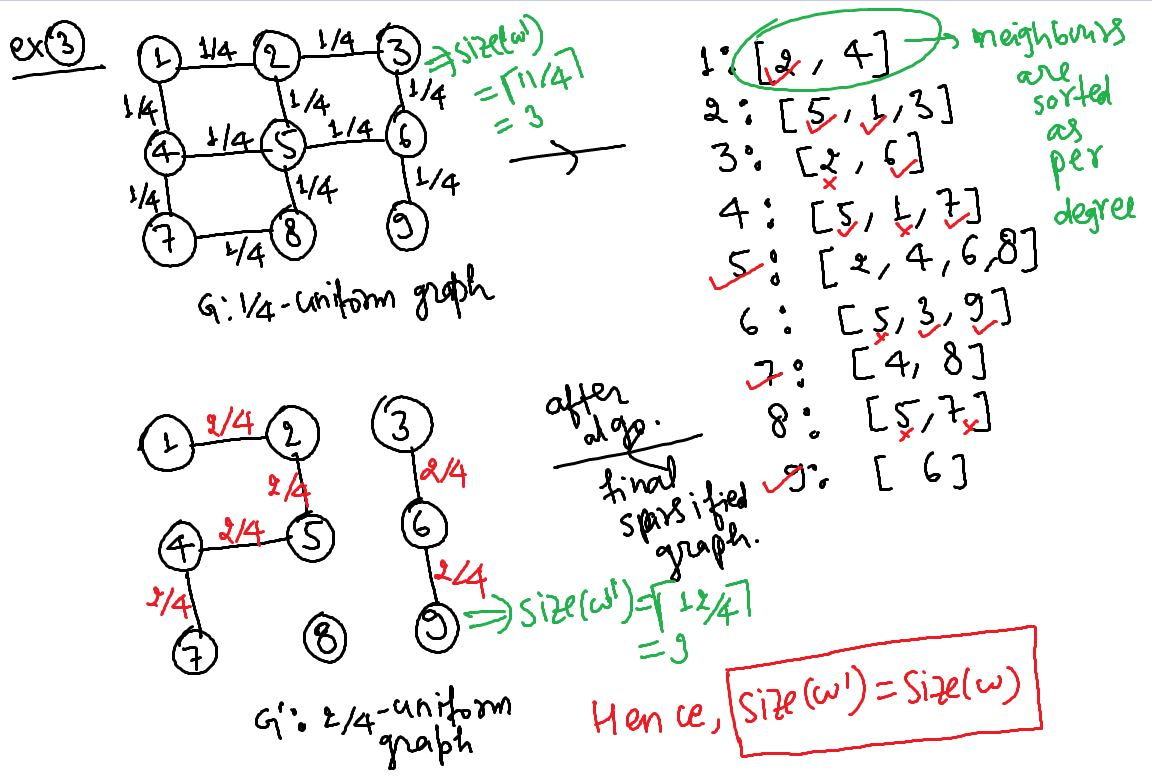 ex ③
1 1/4 2 1/4 3 ⇒ size(w')
= ⌈11/4⌉
= 3
1/4 1/4 1/4
4 1/4 5 1/4 6
1/4 1/4 1/4
7 1/4 8 9
G: 1/4-uniform graph
1: [2, 4] → neighbours
are
sorted
as
per
degree
2: [5, 1, 3]
3: [2, 6]
4: [5, 1, 7]
5: [2, 4, 6, 8]
6: [5, 3, 9]
7: [4, 8]
8: [5, 7]
9: [6]
after
algo.
final
sparsified
graph.
1 2/4 2 3
2/4 2/4
4 2/4 5 6
2/4 2/4
7 8 9 ⇒ size(w') = ⌈12/4⌉
= 3
G': 2/4-uniform
graph
Hence, size(w') = size(w)